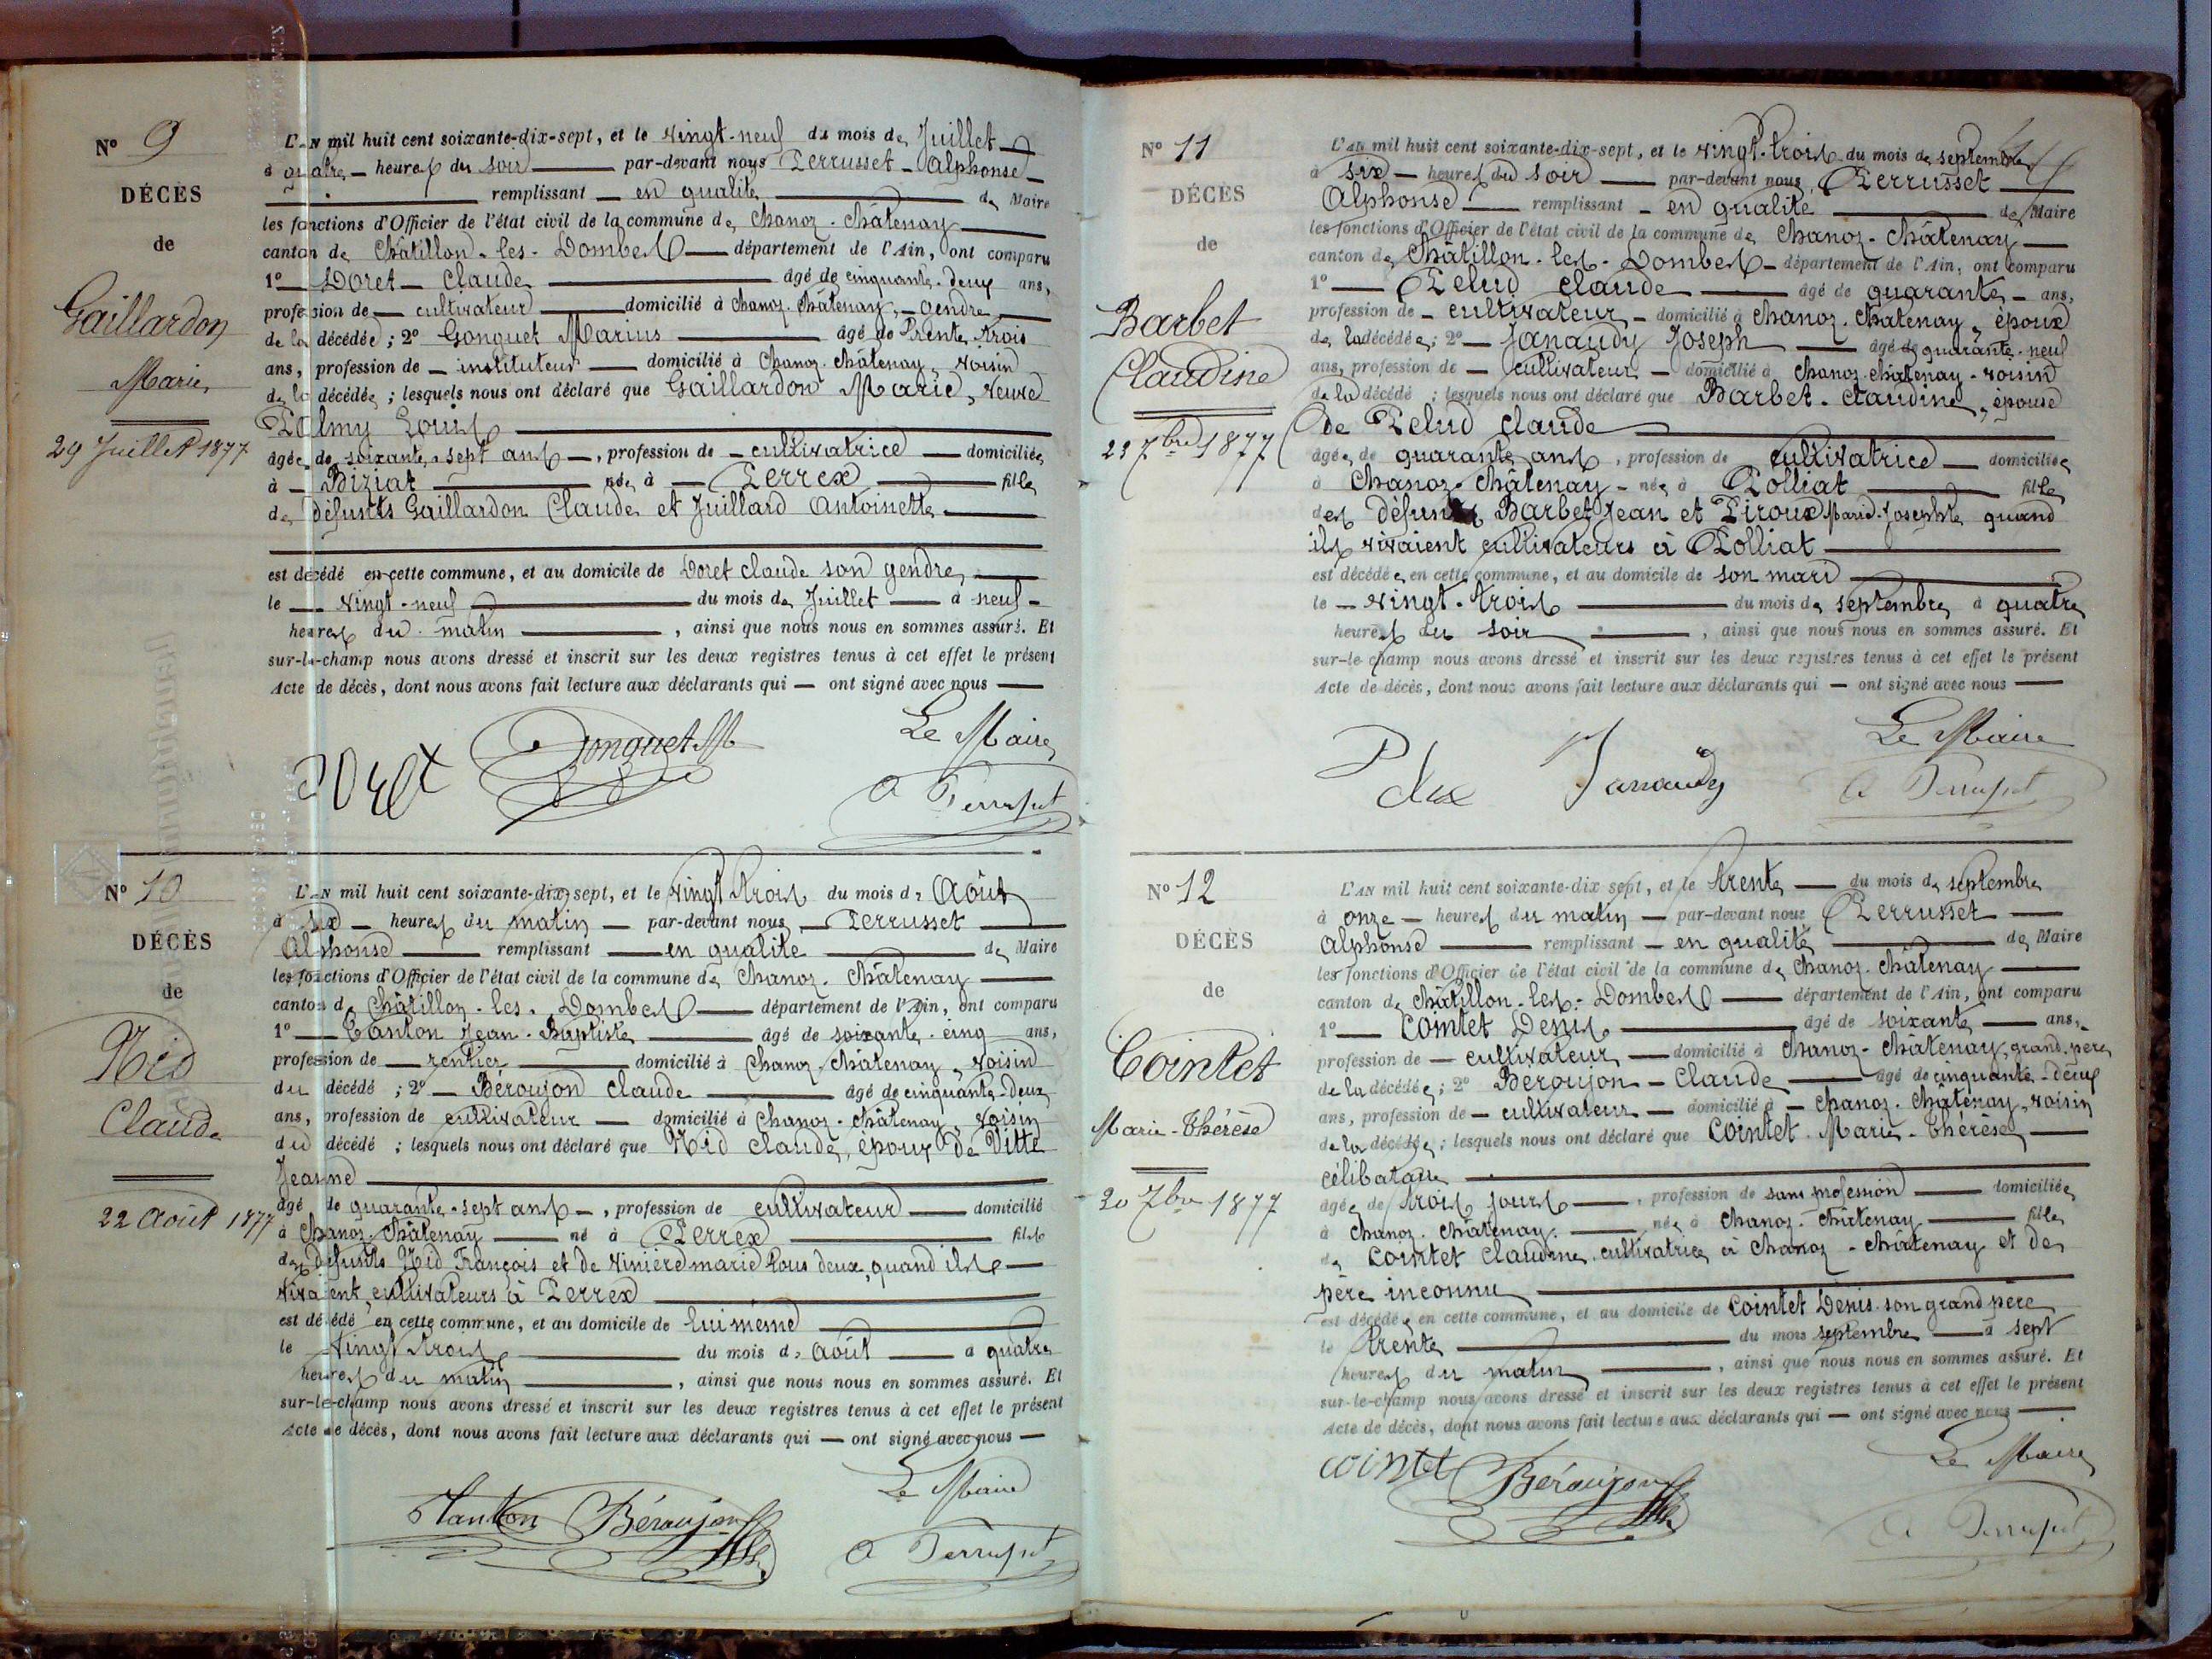 N° 9
DÉCÈS
de
Gaillardon
Marie
29 Juillet 1877
L'AN mil huit cent soixante-dix-sept, et le vingt-neuf du mois de Juillet
à quatre heures du soir par-devant nous Perrusset Alphonse
remplissant en qualité de Maire
les fonctions d'Officier de l'état civil de la commune de Chanoz-Châtenay
canton de Châtillon-les-Dombes département de l'Ain, ont comparu
1° Doret Claude âgé de cinquante-deux ans,
profession de cultivateur domicilié à Chanoz-Châtenay, gendre
de la décédée ; 2° Gonguet Marius âgé de trente trois
ans, profession de instituteur domicilié à Chanoz-Châtenay, voisin
de la décédée ; lesquels nous ont déclaré que Gaillardon Marie, veuve
Louis
âgée de soixante-sept ans, profession de cultivatrice domiciliée
à Biziat née à Perrex fille
de défunts Gaillardon Claude et Juillard Antoinette
est décédé en cette commune, et au domicile de Doret Claude son gendre
le vingt-neuf du mois de Juillet à neuf
heures du matin, ainsi que nous nous en sommes assuré. Et
sur-le-champ nous avons dressé et inscrit sur les deux registres tenus à cet effet le présent
Acte de décès, dont nous avons fait lecture aux déclarants qui ont signé avec nous
Doret Gonguet M Le Maire
A Perrusset
N° 10
DÉCÈS
de
Nid
Claude
22 Août 1877
L'AN mil huit cent soixante-dix-sept, et le vingt trois du mois d' Août
à six heures du matin par-devant nous Perrusset
Alphonse remplissant en qualité de Maire
les fonctions d'Officier de l'état civil de la commune de Chanoz-Châtenay
canton de Châtillon-les-Dombes département de l'Ain, ont comparu
1° Canton Jean-Baptiste âgé de soixante-cinq ans,
profession de rentier domicilié à Chanoz-Châtenay, voisin
du décédé ; 2° Béroujon Claude âgé de cinquante-deux
ans, profession de cultivateur domicilié à Chanoz-Châtenay, voisin
du décédé ; lesquels nous ont déclaré que Nid Claude, époux de Vitte
Jeanne
âgé de quarante-sept ans, profession de cultivateur domicilié
à Chanoz-Châtenay né à Perrex fils
des défunts Nid François et de Vinière marie tous deux, quand ils
vivaient, cultivateurs à Perrex
est décédé en cette commune, et au domicile de lui même
le vingt trois du mois d' Août à quatre
heures du matin, ainsi que nous nous en sommes assuré. Et
sur-le-champ nous avons dressé et inscrit sur les deux registres tenus à cet effet le présent
Acte de décès, dont nous avons fait lecture aux déclarants qui ont signé avec nous
Béroujon Le Maire
A Perrusset
N° 11
DÉCÈS
de
Barbet
Claudine
23 7bre 1877
L'AN mil huit cent soixante-dix-sept, et le vingt-trois du mois de septembre
à six heures du soir par-devant nous, Perrusset
Alphonse remplissant en qualité de Maire
les fonctions d'Officier de l'état civil de la commune de Chanoz-Châtenay
canton de Châtillon-les-Dombes département de l'Ain, ont comparu
1° Pelud Claude âgé de quarante ans,
profession de cultivateur domicilié à Chanoz-Châtenay, époux
de la décédée ; 2° Janaudy Joseph âgé de quarante-neuf
ans, profession de cultivateur domicilié à Chanoz-Châtenay-voisin
de la décédé ; lesquels nous ont déclaré que Barbet-Claudine, épouse
de Pelud Claude
âgée de quarante ans, profession de cultivatrice domiciliée
à Chanoz-Châtenay née à Polliat fille
des défunts Barbet Jean et Piroux Marie-Josephte quand
ils vivaient cultivateurs à Polliat
est décédée en cette commune, et au domicile de son mari
le vingt-trois du mois de septembre à quatre
heures du soir, ainsi que nous nous en sommes assuré. Et
sur-le-champ nous avons dressé et inscrit sur les deux registres tenus à cet effet le présent
Acte de décès, dont nous avons fait lecture aux déclarants qui ont signé avec nous
Janaudy Le Maire
A Perrusset
N° 12
DÉCÈS
de
Cointet
Marie-Thérèse
30 7bre 1877
L'AN mil huit cent soixante-dix sept, et le trente du mois de septembre
à onze heures du matin par-devant nous Perrusset
Alphonse remplissant en qualité de Maire
les fonctions d'Officier de l'état civil de la commune de Chanoz-Châtenay
canton de Châtillon-les-Dombes département de l'Ain, ont comparu
1° Cointet Denis âgé de soixante ans,
profession de cultivateur domicilié à Chanoz-Châtenay, grand-père
de la décédée ; 2° Beroujon-Claude âgé de cinquante-deux
ans, profession de cultivateur domicilié à Chanoz-Châtenay, voisin
de la décédée ; lesquels nous ont déclaré que Cointet Marie-Thérèse
célibataire
âgée de trois jours, profession de sans profession domiciliée
à Chanoz-Châtenay née à Chanoz-Châtenay fille
de Cointet Claudine cultivatrice à Chanoz-Châtenay et de
père inconnu
est décédée en cette commune, et au domicile de Cointet Denis son grand père
le trente du mois septembre à sept
heures du matin, ainsi que nous nous en sommes assuré. Et
sur-le-champ nous avons dressé et inscrit sur les deux registres tenus à cet effet le présent
Acte de décès, dont nous avons fait lecture aux déclarants qui ont signé avec nous
cointet Béroujon Le Maire
A Perrusset